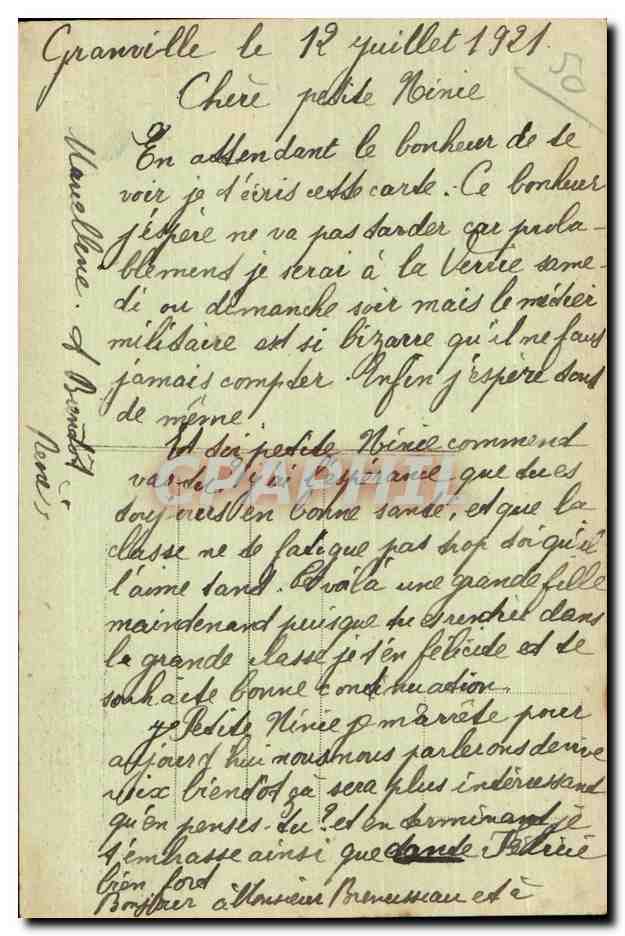 Granville le 12 Juillet 1921.
50
Chère petite Ninie
En attendant le bonheur de te
voir je t'écris cette carte. Ce bonheur
j'espère ne va pas tarder car proba-
blement je serai à la Verrie same-
di ou dimanche soir mais le métier
militaire est si bizarre qu'il ne faut
jamais compter. Enfin j'espère tout
de même
Et toi petite Ninie comment
vas-tu? j'ai l'espérance que tu es
toujours en bonne santé, et que la
classe ne te fatigue pas trop toi qui
l'aime tant. Et voilà une grande fille
maintenant puisque tu es rentrée dans
la grande classe je t'en félicite et te
souhaite bonne continuation.
Petite Ninie je m'arrête pour
aujourd'hui nous nous parlerons de vive
voix bientôt çà sera plus intéressant
qu'en penses-tu? et en terminant je
t'embrasse ainsi que
bien fort
Bonjour à Monsieur et à
A Bientôt
René
CPAPHIL